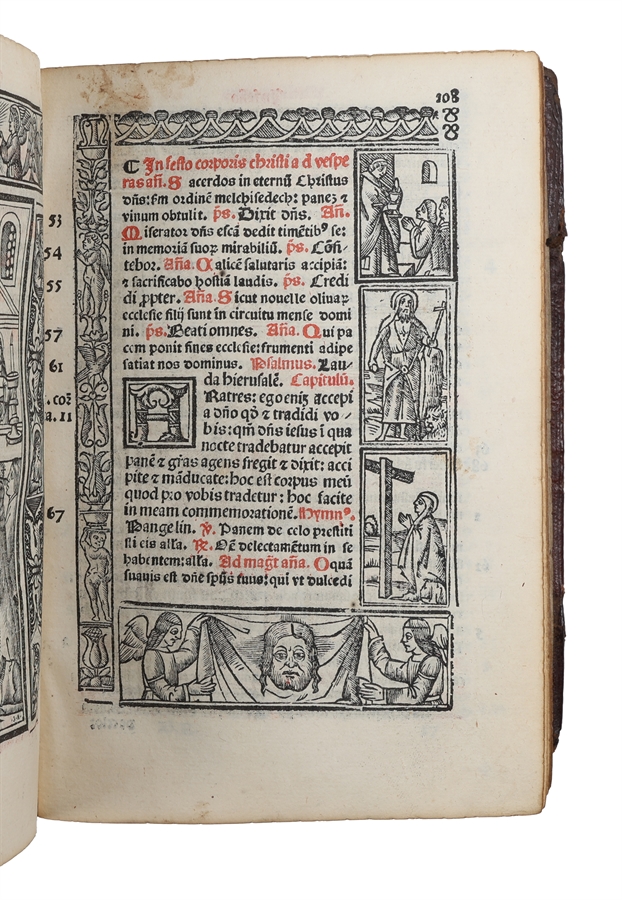 108
53
54
55
57
61
. coȝ
a. 11
67
℧ In festo corporis christi a d vespe
ras añ. S acerdos in eternũ Christus
dñs: ẜm ordinẽ melchisedech: paneȝ ⁊
vinum obtulit. ps. Dixit dñs. Añ.
M iserator dñs escã dedit timẽtibꝰ se:
in memoriã suoꝝ mirabiliũ. ps. Cõfi-
tebor. Aña. C alicẽ salutaris accipiã:
⁊ sacrificabo hostiã laudis. ps. Credi
di ꝓpter. Aña. S icut nouelle oliuaꝝ
ecclesie filij sunt in circuitu mense domi
ni. ps. Beati omnes. Aña. Q ui pa
cem ponit fines ecclesie: frumenti adipe
satiat nos dominus. Psalmus. Lau-
da hierusalẽ. Capitulũ.
F Ratres: ego eniȝ accepi
a dño qđ ⁊ tradidi vo-
bis: qm̃ dñs iesus ĩ qua
nocte tradebatur accepit
panẽ ⁊ gr̃as agens fregit ⁊ dixit: acci
pite ⁊ mãducate: hoc est corpus meũ
quod pro vobis tradetur: hoc facite
in meam commemorationẽ. Hymnꝰ.
Pange lin. ℣. Panem de celo prestiti
sti eis alĩa. ℟. Oẽ delectamẽtum in se
habentem: alĩa. Ad mag̃t aña. O quã
suauis est dñe spũs tuus: qui vt dulcedi